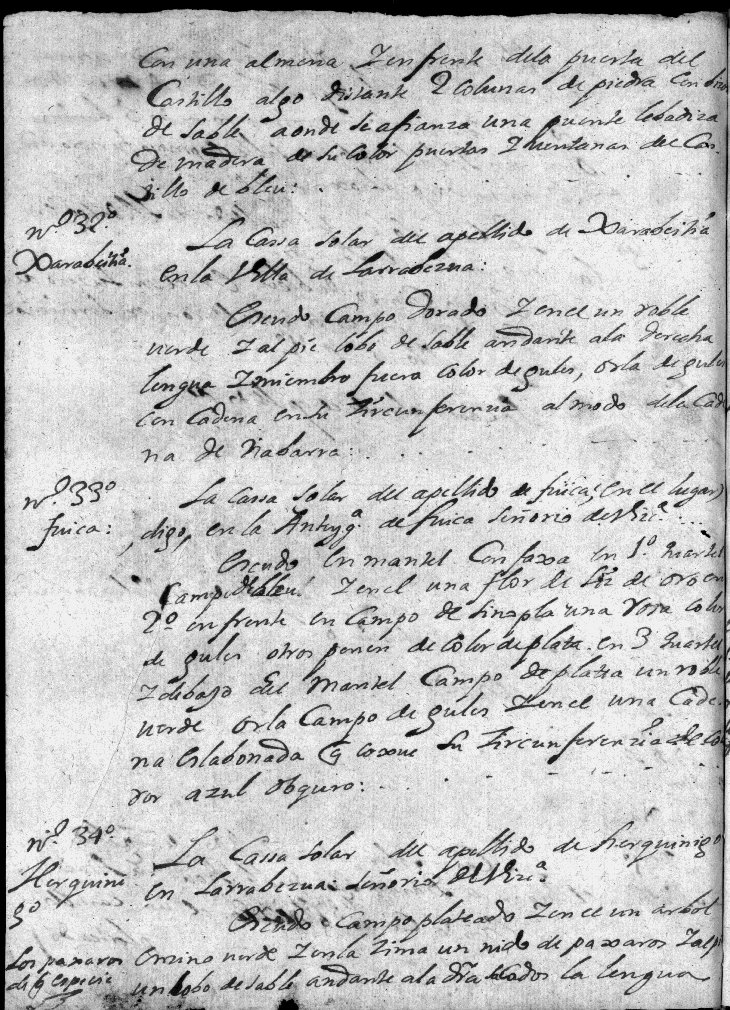 Con una almena Z en frente dela puerta del
Castillo algo distante 2 colunas de piedra Con
de sable aonde se afianza una puente lebadiza
de madera de su color puertas Z ventanas del Cas-
tillo de bleu:
nº. 32º.
Xarabeitia.
La Cassa solar del apellido de Xarabeitia
en la Villa de Larrabezua:
Escudo Campo dorado Z en el un roble
verde Z al pie lobo de sable andante ala derecha
lengua Z miembro fuera color de gules, orla de gules
con Cadena en su Zircunferenzia al modo dela Cade
na de Nabarra:
nº. 33º
fuica:
La Cassa solar del apellido de fuica, (en el lugar)
digo, en la Antigª. de fuica señorio de Vizª.
Escudo en mantel Con faxa en 1º. quartel
Campo Z en el una flor de Liz de oro en
2º en frente en Campo de sinopla una rosa color
de gules otros ponen de color de plata. en 3 quartel
Z debajo del Mantel Campo de plata un roble
verde orla Campo de gules Z en el una Cade-
na eslabonada q coxue su Zircunferenzia de co
lor azul obscuro:
nº. 34º.
Herquini
gº
La Cassa solar del apellido de herquinigo
en Larrabezua: señorio de Vizª.
Escudo Campo plateado Z en el un arbol
Los paxaros
de q especie
enzino verde Z en la Zima un nido de paxaros Z al pie
un lobo de sable andante ala dra la lengua